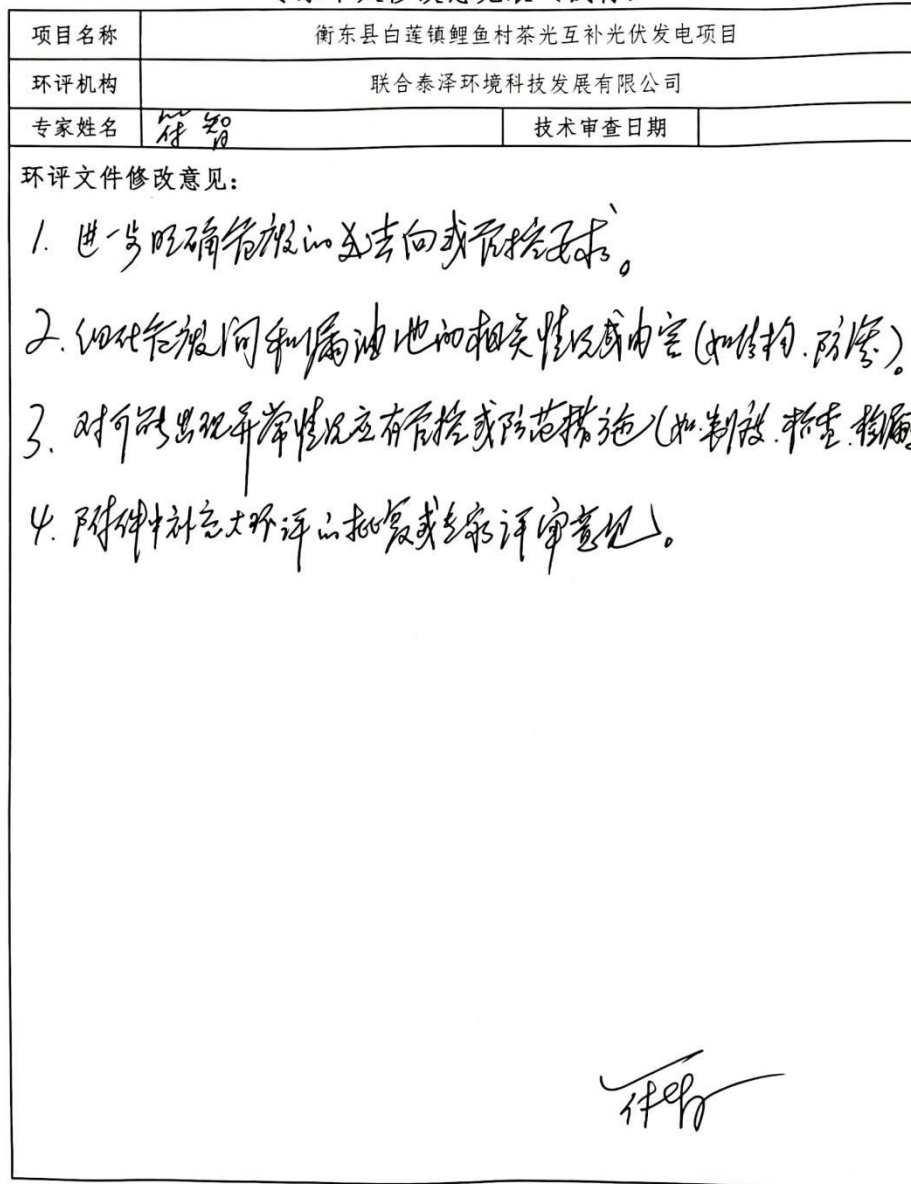 项目名称 衡东县白莲镇鲤鱼村茶光互补光伏发电项目
环评机构 联合泰泽环境科技发展有限公司
专家姓名 符智 技术审查日期
环评文件修改意见：
1. 进一步明确危废的去向或管控要求。
2. 细化危废间和漏油池的相关情况或内容(如结构.防渗)。
3. 对可能出现异常情况应有管控或防范措施(如.制度.检查.检漏
4. 附件中补充大环评的批复或专家评审意见。
符智